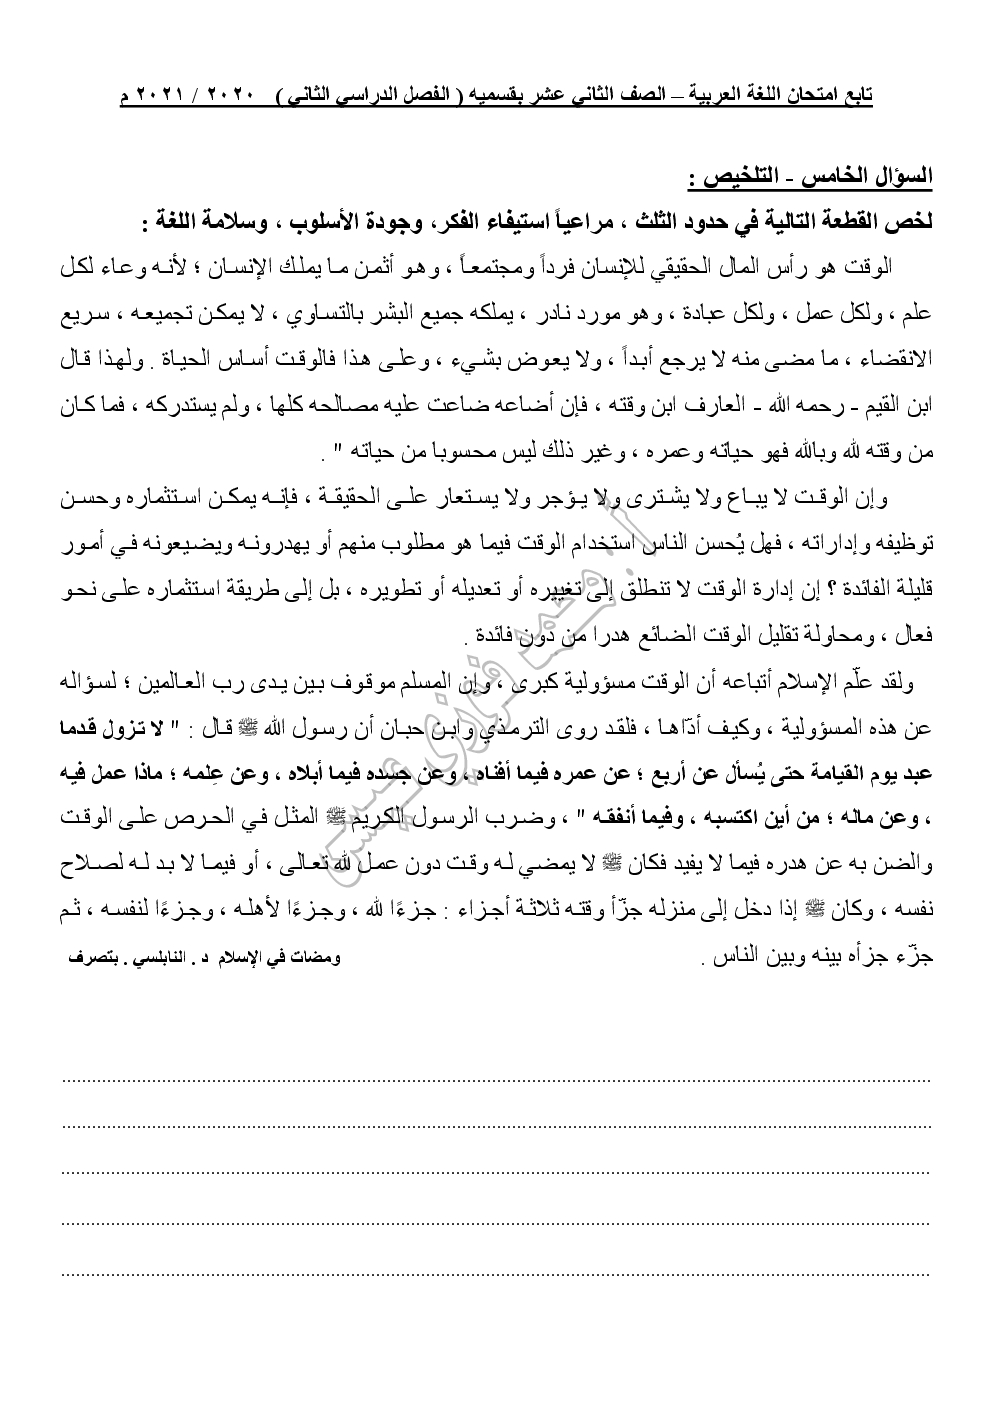 تابع امتحان اللغة العربية – الصف الثاني عشر بقسميه ( الفصل الدراسي الثاني ) ٢٠٢٠ / ٢٠٢١ م
السؤال الخامس - التلخيص :
لخص القطعة التالية في حدود الثلث ، مراعياً استيفاء الفكر، وجودة الأسلوب ، وسلامة اللغة :
الوقت هو رأس المال الحقيقي للإنسان فرداً ومجتمعاً ، وهو أثمن ما يملك الإنسان ؛ لأنه وعاء لكل
علم ، ولكل عمل ، ولكل عبادة ، وهو مورد نادر ، يملكه جميع البشر بالتساوي ، لا يمكن تجميعه ، سريع
الانقضاء ، ما مضى منه لا يرجع أبداً ، ولا يعوض بشيء ، وعلى هذا فالوقت أساس الحياة . ولهذا قال
ابن القيم - رحمه الله - العارف ابن وقته ، فإن أضاعه ضاعت عليه مصالحه كلها ، ولم يستدركه ، فما كان
من وقته لله وبالله فهو حياته وعمره ، وغير ذلك ليس محسوبا من حياته " .
وإن الوقت لا يباع ولا يشترى ولا يؤجر ولا يستعار على الحقيقة ، فإنه يمكن استثماره وحسن
توظيفه وإداراته ، فهل يُحسن الناس استخدام الوقت فيما هو مطلوب منهم أو يهدرونه ويضيعونه في أمور
قليلة الفائدة ؟ إن إدارة الوقت لا تنطلق إلى تغييره أو تعديله أو تطويره ، بل إلى طريقة استثماره على نحو
فعال ، ومحاولة تقليل الوقت الضائع هدرا من دون فائدة .
ولقد علّم الإسلام أتباعه أن الوقت مسؤولية كبرى ، وإن المسلم موقوف بين يدى رب العالمين ؛ لسؤاله
عن هذه المسؤولية ، وكيف أدّاها ، فلقد روى الترمذي وابن حبان أن رسول الله ﷺ قال : " لا تزول قدما
عبد يوم القيامة حتى يُسأل عن أربع ؛ عن عمره فيما أفناه ، وعن جسده فيما أبلاه ، وعن عِلمه ؛ ماذا عمل فيه
، وعن ماله ؛ من أين اكتسبه ، وفيما أنفقه " ، وضرب الرسول الكريم ﷺ المثل في الحرص على الوقت
والضن به عن هدره فيما لا يفيد فكان ﷺ لا يمضي له وقت دون عمل لله تعالى ، أو فيما لا بد له لصلاح
نفسه ، وكان ﷺ إذا دخل إلى منزله جزّأ وقته ثلاثة أجزاء : جزءًا لله ، وجزءًا لأهله ، وجزءًا لنفسه ، ثم
جزّء جزأه بينه وبين الناس . ومضات في الإسلام د . النابلسي . بتصرف